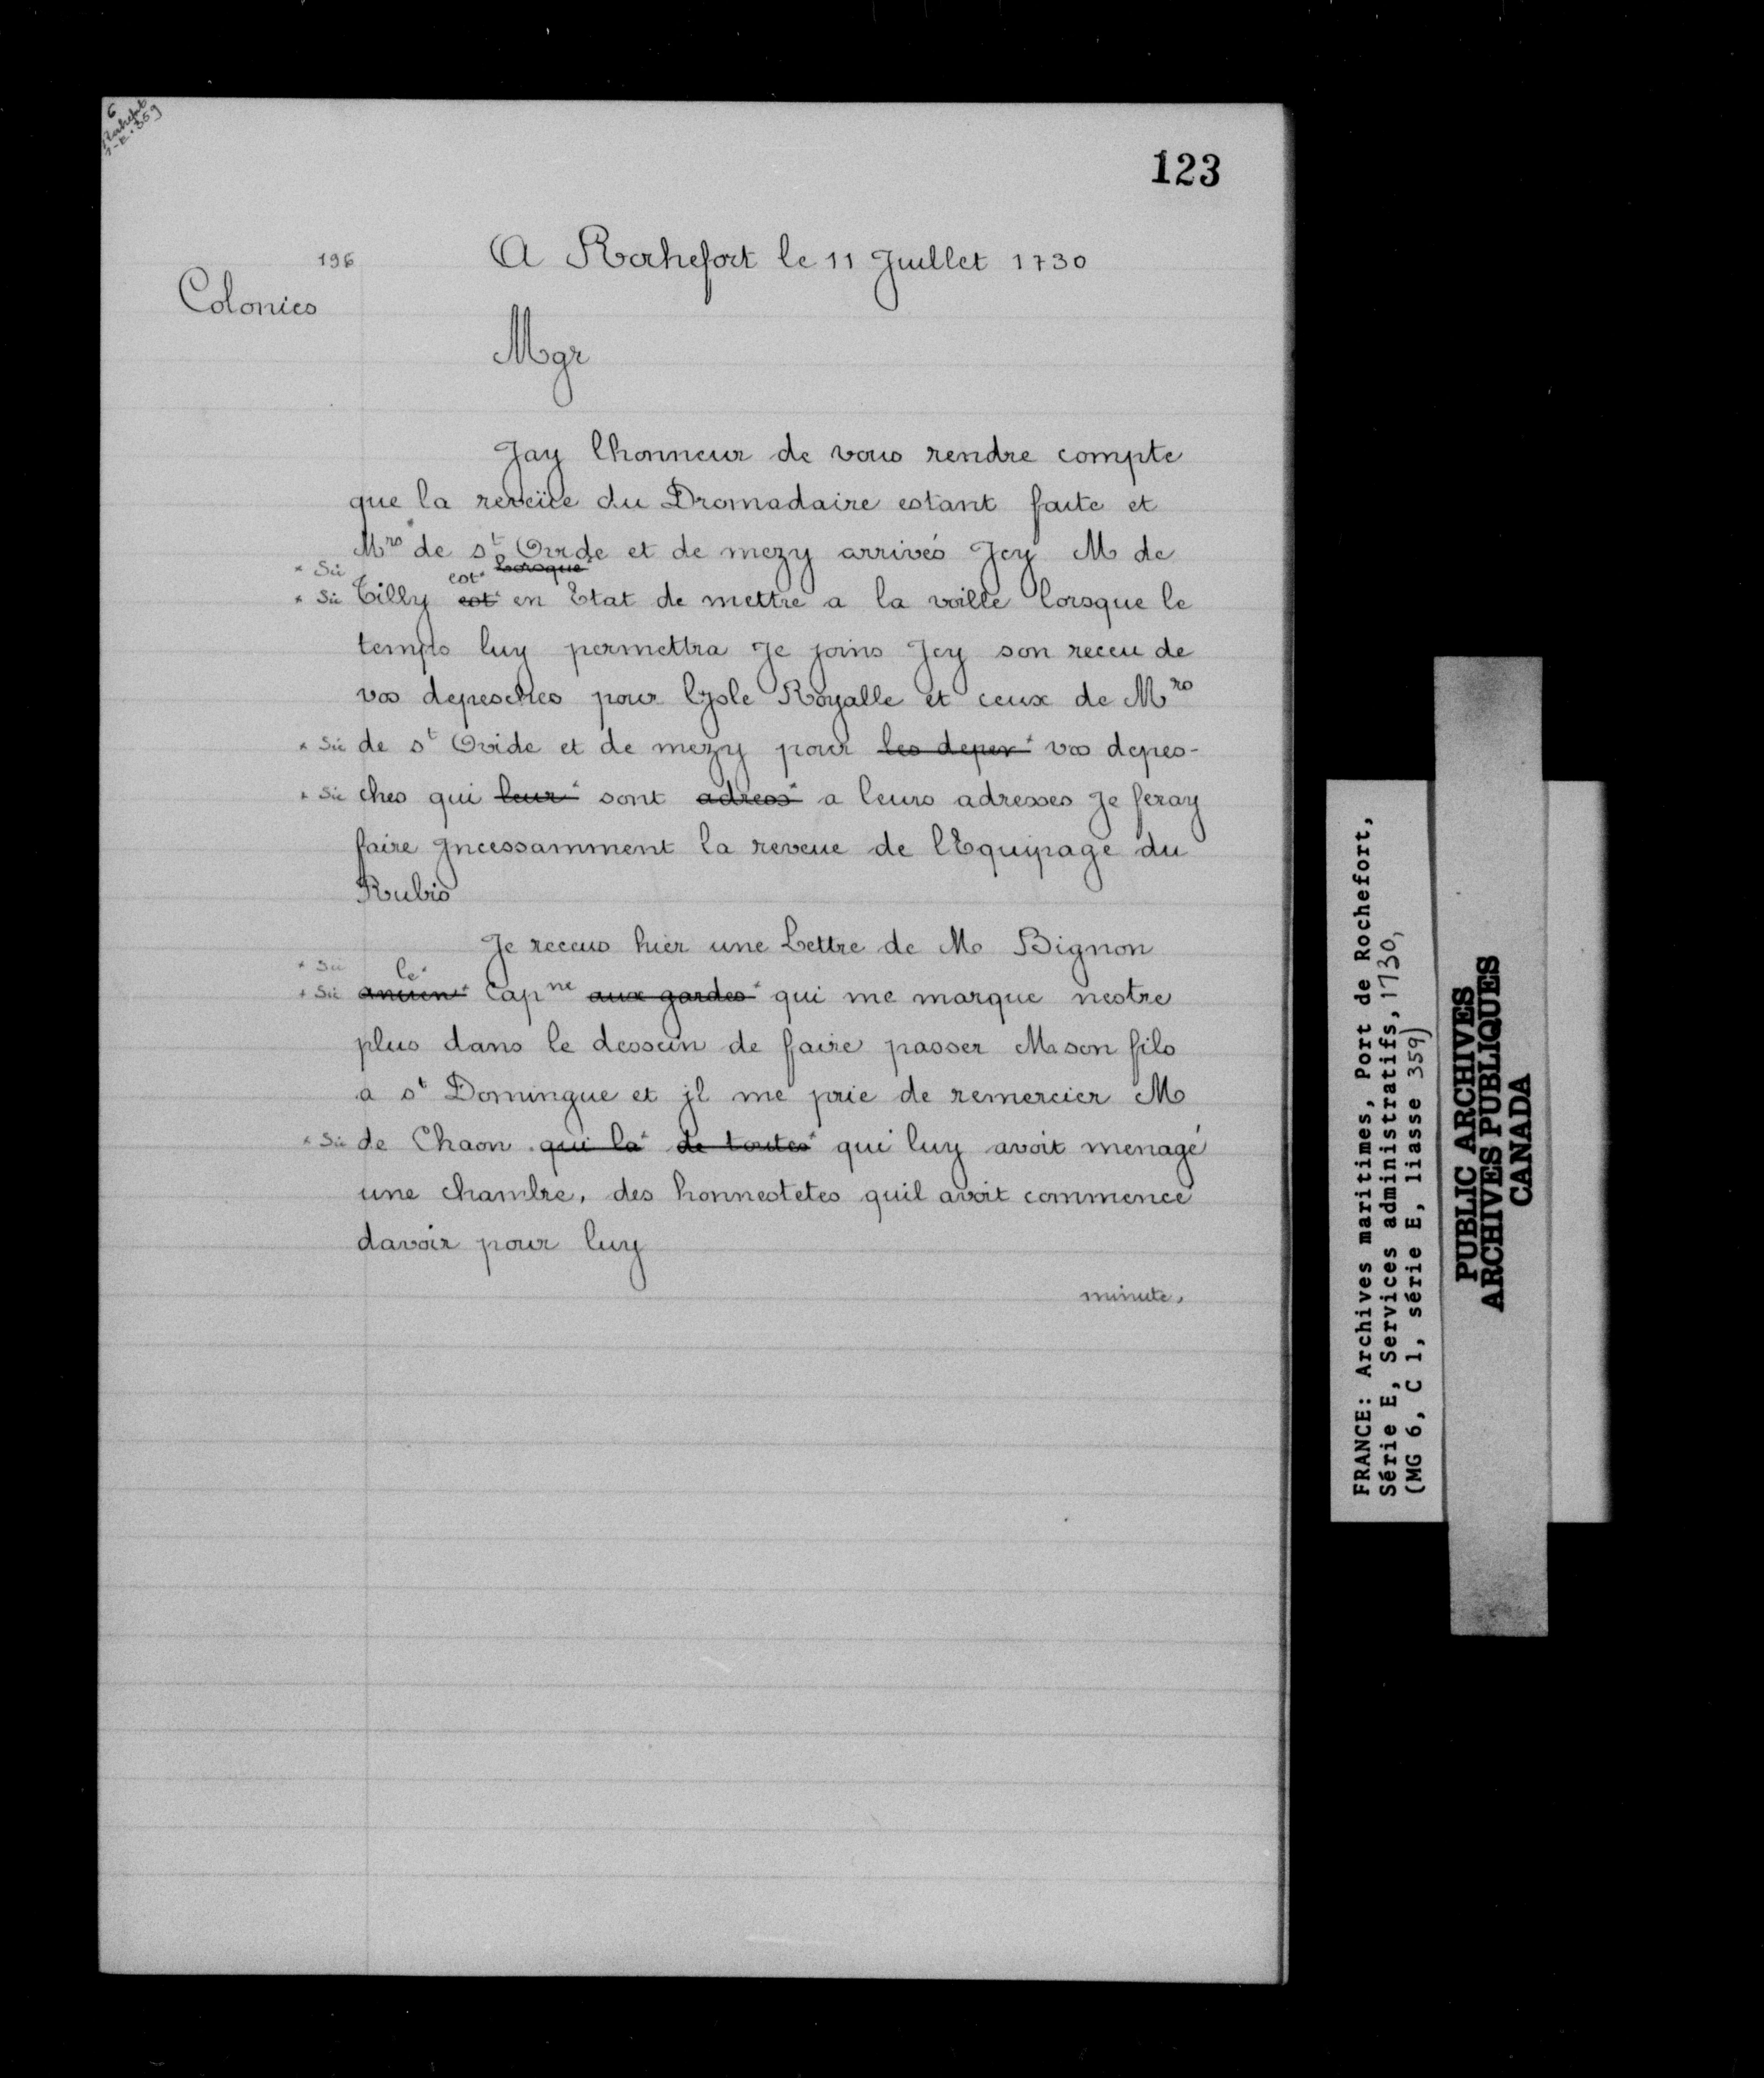 6
Rochefort
1-E-359
123
196
A Rochefort le 11 Juillet 1730
Colonies
Mgr
Jay lhonneur de vous rendre compte
que la reveüe du Dromadaire estant faite et
Mrs de st Ovide et de mezy arrivés Jcy M de
* Sic est* Lorsque*
* Sic Tilly est* en Etat de mettre a la voille lorsque le
temps luy permettra Je joins Jcy son receu de
vos depesches pour lJsle Royalle et ceux de Mrs
* Sic de st Ovide et de mezy pour les depes* vos depes-
* Sic ches qui leur* sont adress* a leurs adresses Je feray
faire Jncessamment la reveue de lEquipage du
Rubis
Je receus hier une Lettre de M Bignon
* Sic le*
* Sic ancien* Capne aux gardes* qui me marque nestre
plus dans le dessein de faire passer M son fils
a st Domingue et jl me prie de remercier M
* Sic de Chaon qui la* de toutes* qui luy avoit menagé
une chambre, des honnestetes quil avoit commencé
davoir pour luy
minute.
FRANCE: Archives maritimes, Port de Rochefort,
Série E, Services administratifs, 1730,
(MG 6, C 1, série E, liasse 359)
PUBLIC ARCHIVES
ARCHIVES PUBLIQUES
CANADA